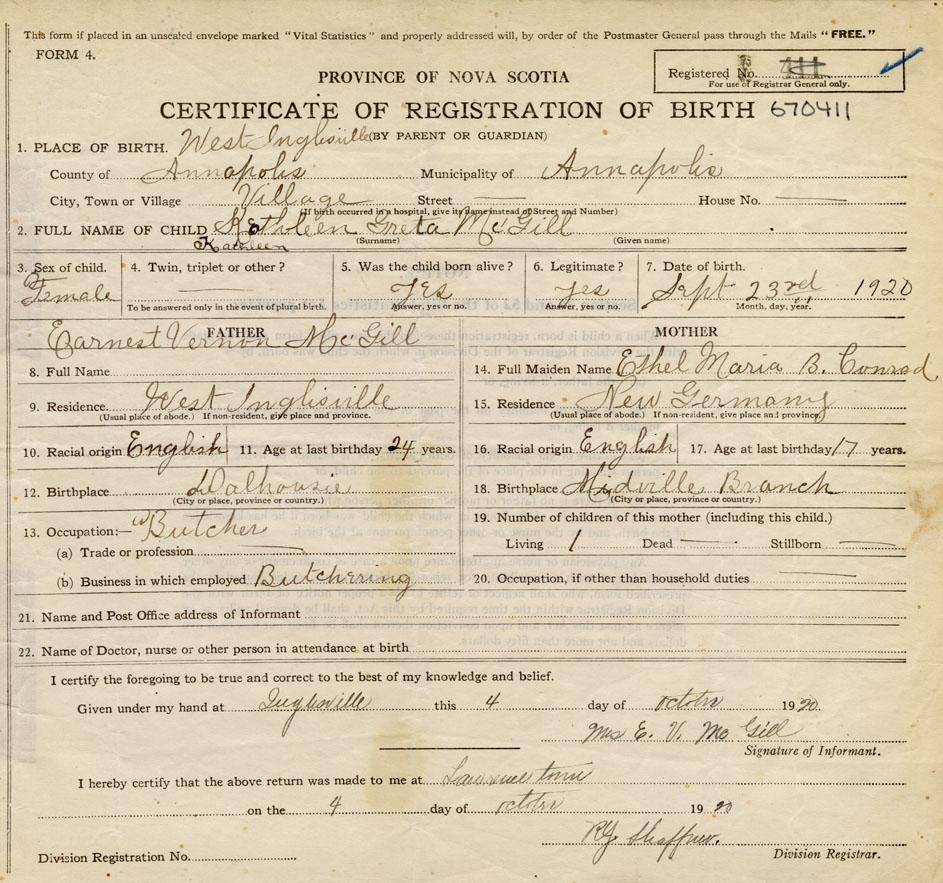 This form if placed in an unsealed envelope marked "Vital Statistics" and properly addressed will, by order of the Postmaster General pass through the Mails "FREE."
FORM 4.
Registered No. 411
For use of Registrar General only.
PROVINCE OF NOVA SCOTIA
CERTIFICATE OF REGISTRATION OF BIRTH 670411
(BY PARENT OR GUARDIAN)
1. PLACE OF BIRTH. West Inglisville
County of Annapolis Municipality of Annapolis
City, Town or Village Village Street House No.
(If birth occurred in a hospital, give its name instead of Street and Number)
2. FULL NAME OF CHILD Kathleen Greta McGill
Kathleen (Surname) (Given name)
3. Sex of child. 4. Twin, triplet or other? 5. Was the child born alive? 6. Legitimate? 7. Date of birth.
Female Yes Yes Sept 23rd 1920
To be answered only in the event of plural birth. Answer, yes or no. Answer, yes or no. Month, day, year.
FATHER MOTHER
Earnest Vernon McGill
8. Full Name
14. Full Maiden Name Ethel Maria B. Conrad
9. Residence. West Inglisville
(Usual place of abode.) If non-resident, give place and province.
15. Residence New Germany
(Usual place of abode.) If non-resident, give place and province.
10. Racial origin English 11. Age at last birthday 24 years.
16. Racial origin English 17. Age at last birthday 17 years.
12. Birthplace Dalhousie
(City or place, province or country.)
18. Birthplace Midville Branch
(City or place, province or country.)
13. Occupation:— Butcher
(a) Trade or profession
(b) Business in which employed Butchering
19. Number of children of this mother (including this child.)
Living 1 Dead Stillborn
20. Occupation, if other than household duties
21. Name and Post Office address of Informant
22. Name of Doctor, nurse or other person in attendance at birth
I certify the foregoing to be true and correct to the best of my knowledge and belief.
Given under my hand at Inglisville this 4 day of october 1920
Mrs E. V. McGill
Signature of Informant.
I hereby certify that the above return was made to me at Lawrencetown
on the 4 day of october 1920
Shaffner.
Division Registration No.
Division Registrar.